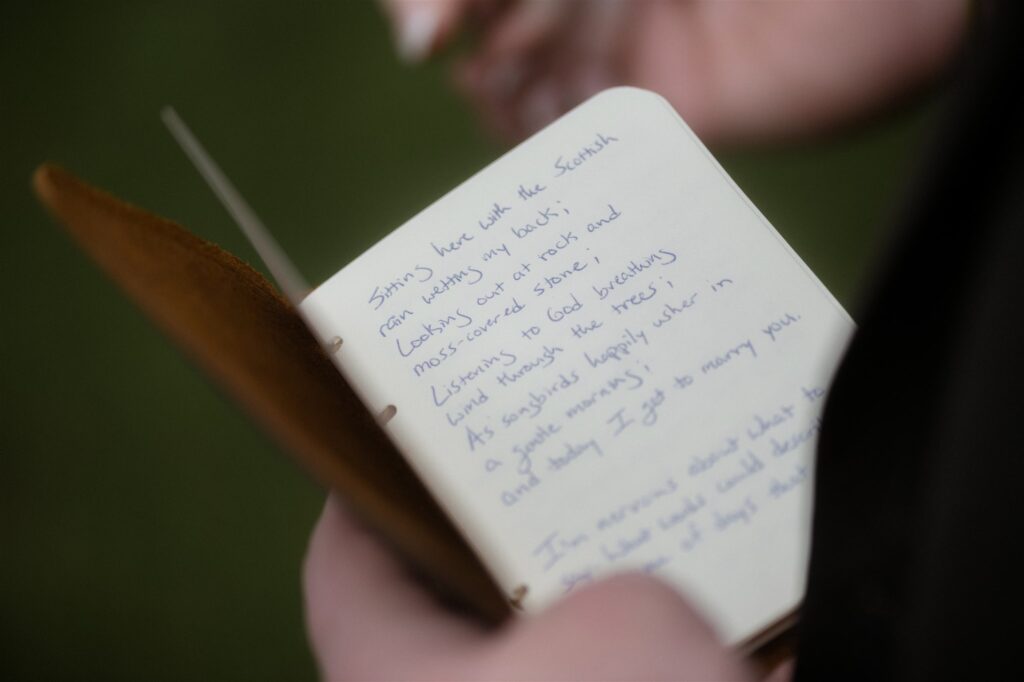 Sitting here with the Scottish
rain wetting my back;
Looking out at rock and
moss-covered stone;
Listening to God breathing
wind through the trees;
As songbirds happily usher in
a gentle morning;
and today I get to marry you.
I'm nervous about what to
say. What words could
of days that